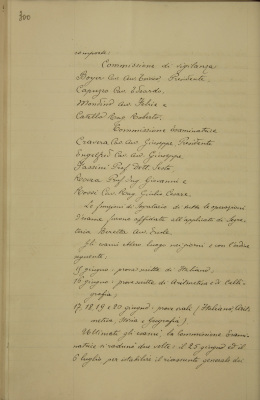 300
composte:
Commissione di vigilanza
Boyer Cav. Avv. Enrico Presidente
Capuzzo Cav. Edoardo
Mondino Avv. Felice e
Catella Ing. Roberto.
Commissione esaminatrice
Craveri Cav. Avv. Giuseppe Presidente
Engelfred Cav. Avv. Giuseppe
Fassini Prof. Dott. Sesto
Rovera Prof. Ing. Giovanni e
Rossi Cav. Rag. Giulio Cesare.
Le funzioni di Segretario di tutte le operazioni
d'esame furono affidate all'applicato di Segre-
teria Beretta Avv. Paolo.
Gli esami ebbero luogo nei giorni e con l'ordine
seguente:
15 giugno: prova scritta di Italiano;
16 giugno: prova scritta di Aritmetica e di Calli-
grafia;
17, 18, 19 e 20 giugno: prove orali (Italiano, Arit-
metica, Storia e Geografia).
Ultimati gli esami, la Commissione Esami-
natrice si radunò due volte: il 25 giugno ed il
6 luglio, per stabilire il riassunto generale dei